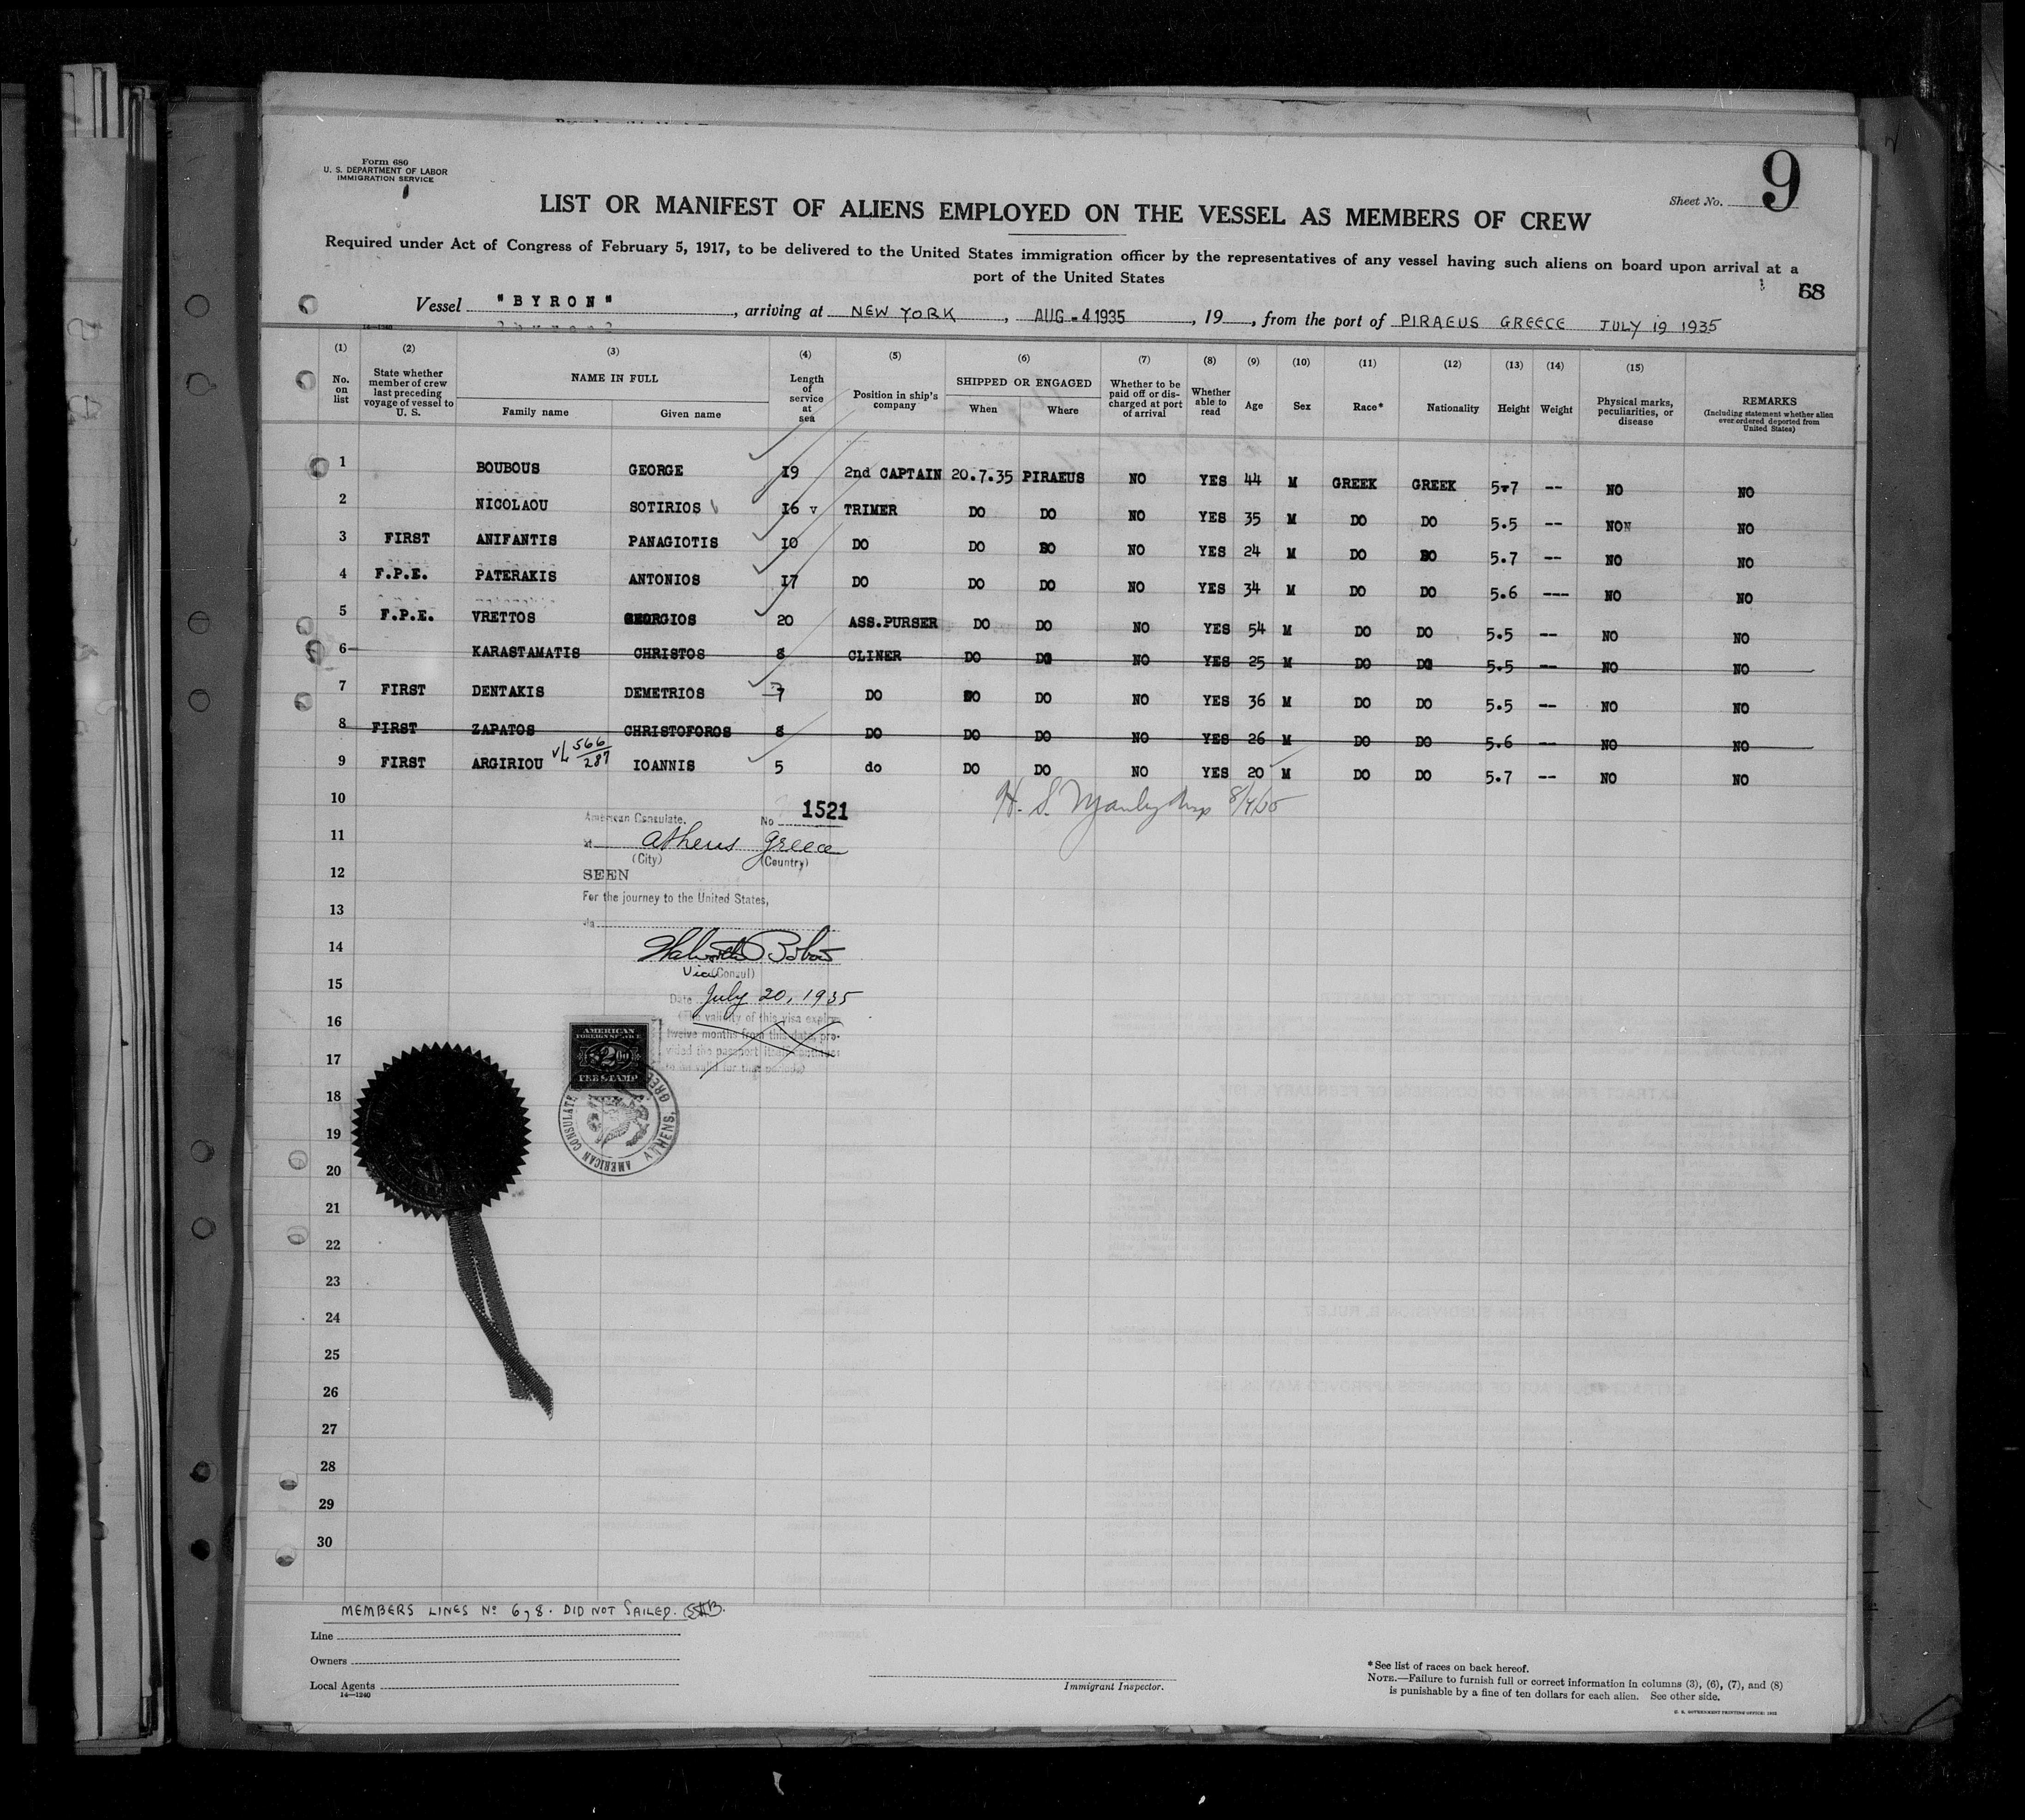 Form 680
U. S. DEPARTMENT OF LABOR
IMMIGRATION SERVICE
Sheet No. 9
LIST OR MANIFEST OF ALIENS EMPLOYED ON THE VESSEL AS MEMBERS OF CREW
Required under Act of Congress of February 5, 1917, to be delivered to the United States immigration officer by the representatives of any vessel having such aliens on board upon arrival at a
port of the United States
68
Vessel "BYRON", arriving at NEW YORK, AUG - 4 1935, 19 , from the port of PIRAEUS GREECE JULY 19 1935
14—1240
(1) (2) (3) (4) (5) (6) (7) (8) (9) (10) (11) (12) (13) (14) (15)
No. on list State whether member of crew last preceding voyage of vessel to U. S. NAME IN FULL Family name Given name Length of service at sea Position in ship's company SHIPPED OR ENGAGED When Where Whether to be paid off or discharged at port of arrival Whether able to read Age Sex Race* Nationality Height Weight Physical marks, peculiarities, or disease REMARKS (Including statement whether alien ever ordered deported from United States)
1 BOUBOUS GEORGE 19 2nd CAPTAIN 20.7.35 PIRAEUS NO YES 44 M GREEK GREEK 5-7 -- NO NO
2 NICOLAOU SOTIRIOS 16 v TRIMER DO DO NO YES 35 M DO DO 5.5 -- NON NO
3 FIRST ANIFANTIS PANAGIOTIS 10 DO DO DO NO YES 24 M DO DO 5.7 -- NO NO
4 F.P.E. PATERAKIS ANTONIOS 17 DO DO DO NO YES 34 M DO DO 5.6 --- NO NO
5 F.P.E. VRETTOS GEORGIOS 20 ASS.PURSER DO DO NO YES 54 M DO DO 5.5 -- NO NO
6 KARASTAMATIS CHRISTOS 8 CLINER DO DO NO YES 25 M DO DO 5.5 -- NO NO
7 FIRST DENTAKIS DEMETRIOS 7 DO DO DO NO YES 36 M DO DO 5.5 -- NO NO
8 FIRST ZAPATOS CHRISTOFOROS 8 DO DO DO NO YES 26 M DO DO 5.6 -- NO NO
566/287
9 FIRST ARGIRIOU IOANNIS 5 do DO DO NO YES 20 M DO DO 5.7 -- NO NO
10
American Consulate. No 1521
H. S. 8/4/35
11
at Athens Greece
(City) (Country)
12
SEEN
For the journey to the United States,
13
14
Vice (Consul)
15
Date July 20, 1935
16
The validity of this visa expires
twelve months from this date, pro-
vided the passport itself continues
to be valid for that period.
AMERICAN
FOREIGN SERVICE
$2.00
FEE STAMP
17
18
AMERICAN CONSULATE ATHENS, GREECE
19
20
21
22
23
24
25
26
27
28
29
30
MEMBERS LINES No 6, 8. DID NOT SAILED.
Line
Owners
Local Agents
14—1240
Immigrant Inspector.
*See list of races on back hereof.
NOTE.—Failure to furnish full or correct information in columns (3), (6), (7), and (8)
is punishable by a fine of ten dollars for each alien. See other side.